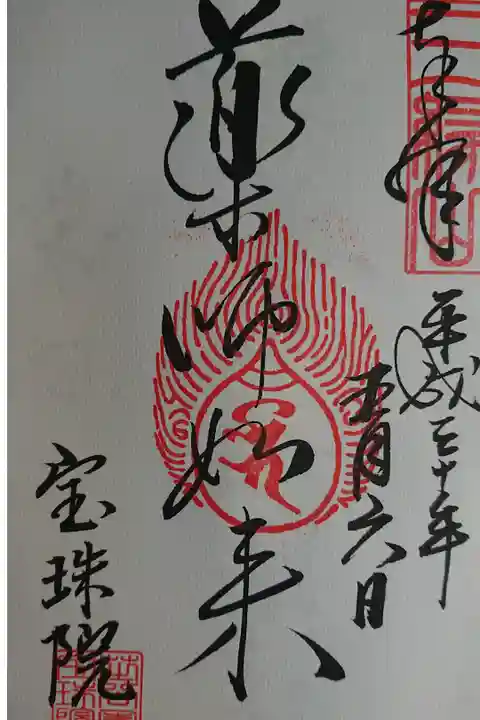 奉拝
平成三十年
五月六日
薬師如来
宝珠院